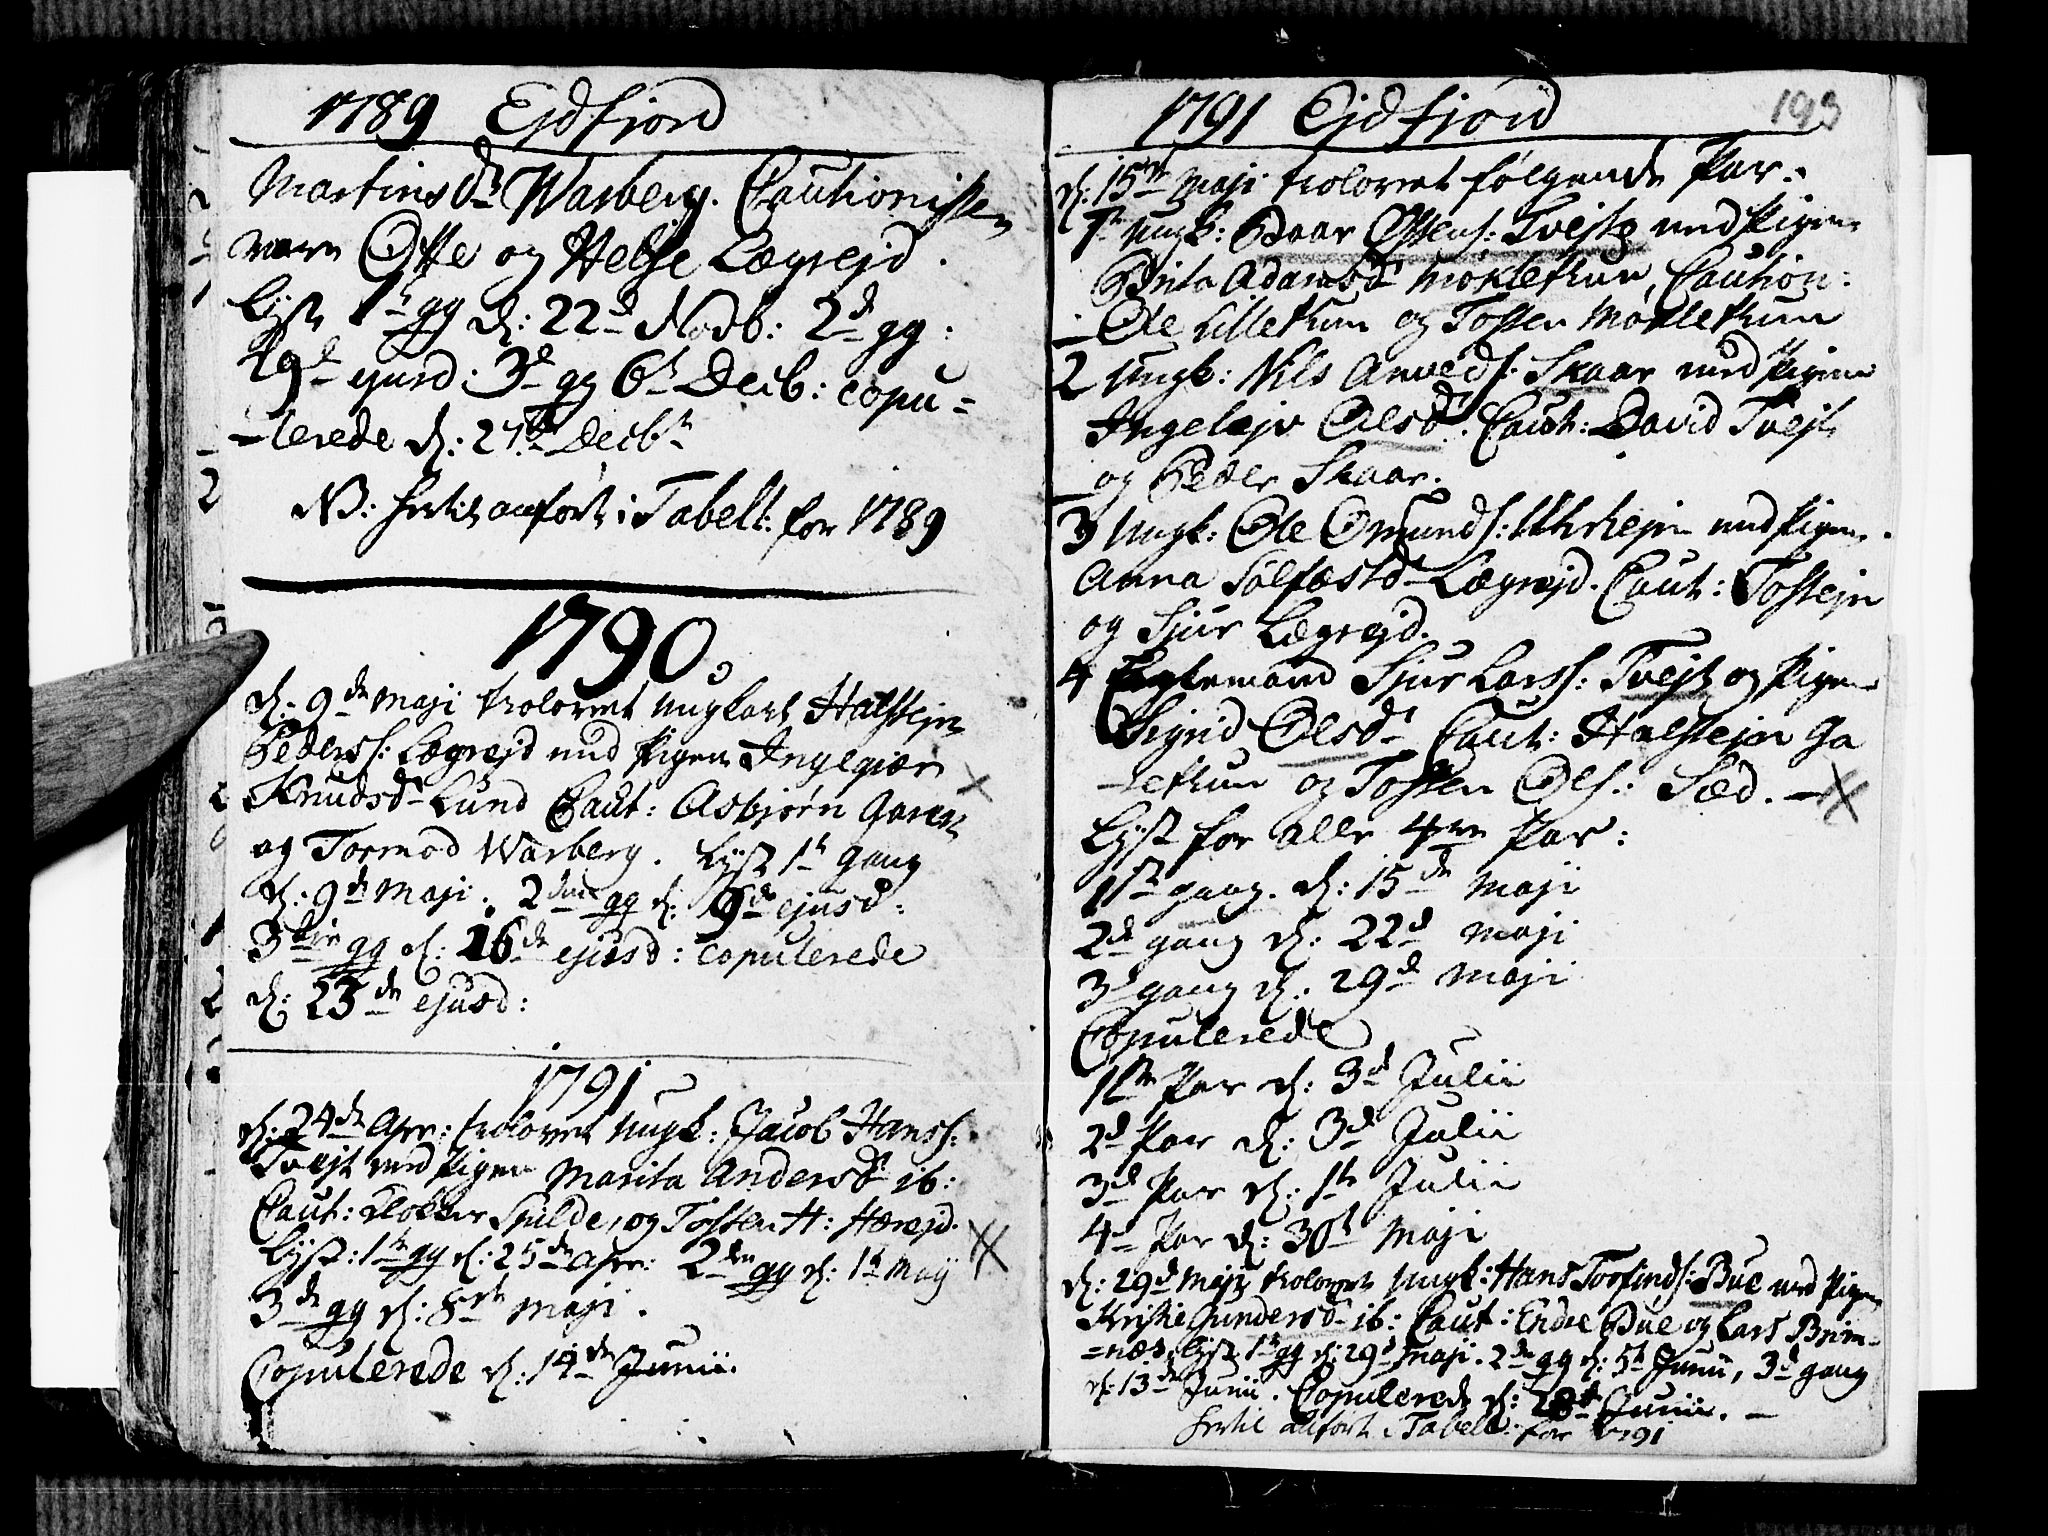 1789 Ejdfjord
Martinsdr Warberg. Cautionister
ware Otte og Helje Lægrejd.
Lyst 1te gg d: 22de Novb: 2de gg:
29de ejusd: 3de gg 6te Decb: copu=
=lerede d: 27de Decbr
NB: hertil anført i Tabell: for 1789
1790.
d: 9de Maji trolovet ungkarl Halstejn
Peders: Lægrejd med Pigen Ingegiær
Knudsdr Lund Caut: Asbjørn Garen
og Tormod Warberg. Lyst 1te Gang
d: 9de Maji. 2den gg d: 9de ejusd:
3die gg d: 16de ejusd: copulerede
d: 23de ejusd:
1791
d: 24de Apr: trolovet ungk: Jacob Hans:
Tvejt med Pigen Marita Andersdr ib:
Caut: Spilde, og Tosten H: Hærejd.
Lyst: 1te gg d: 25de Apr: 2den gg d: 1te Maij
3de gg d: 8de Maji.
Copulerede d: 14de Junii.
1791 Ejdfjord 193
d: 15de Maji trolovet følgende Par.
1te ungk: Baar Ostens: Tvejt med Pigen
Brita Adamsdr Møkletun, Caution:
Ole Lilletun og Tosten Møkletun
2 ungk: Nils Anveds: Skaar med Pigen
Ingelejv Olsdr. Caut: David Tvejt
og Peder Skaar.
3 ungk: Ole Omunds: med Pigen
Anna Sølfæstdr Lægrejd. Caut: Tostejn
og Sjur Lægrejd.
4 Enkemand Sjur Lars: Tvejt og Pigen
Sigrid Olsdr Caut: Halstejn Ga
=letun og Tosten Ols: Sæd.
Lyst for alle 4re Par:
1ste gang. d: 15de Maji
2de gang d: 22de Maji
3de gang d: 29de Maji
Copulerede
1ste Par d: 3de Julii
2de Par d: 3de Julii
3de Par d: 1te Julii
4de Par d: 30te Maji
d: 29de Maji trolovet ungk: Hans Torfinds: Bue med Pigen
Gundersdr ib: Caut: Endre Bue og Lars Brim=
=næs, lyst 1te gg d: 29de Maji. 2de gg d: 5te Junii, 3de gang
d: 13de Junii. Copulerede d: 28de Junii.
hertil anført i Tabell: for 1791